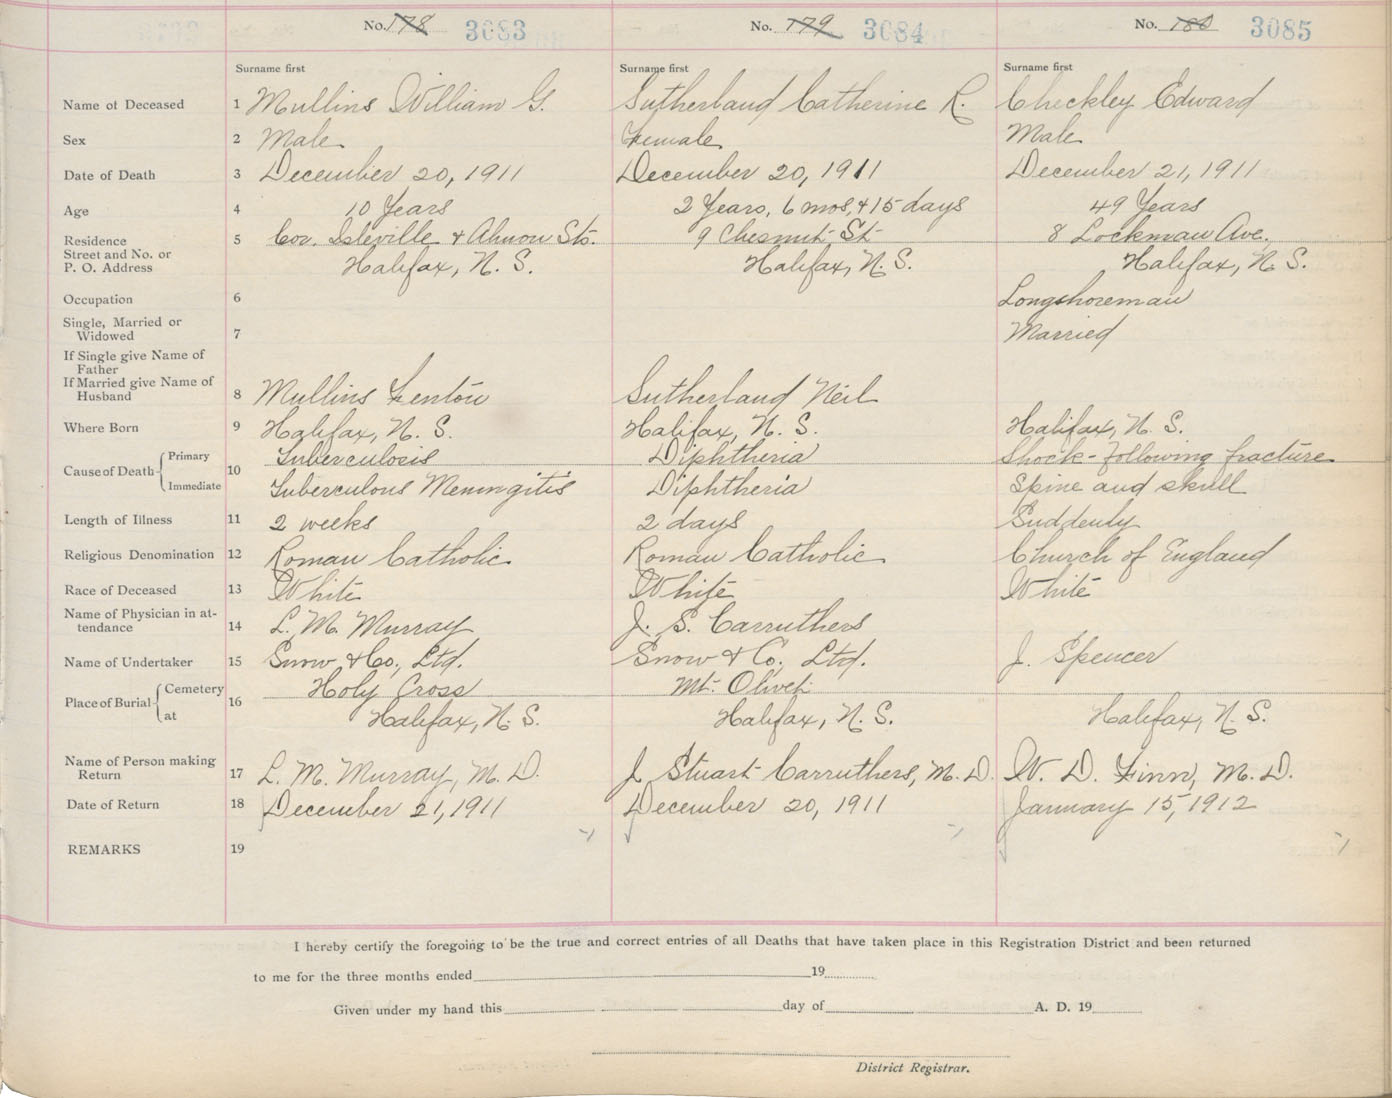 No. 178 3083 No. 179 3084 No. 180 3085
Surname first Surname first Surname first
Name of Deceased 1 Mullins William G. Sutherland Catherine R. Checkley Edward
Sex 2 Male Female Male
Date of Death 3 December 20, 1911 December 20, 1911 December 21, 1911
Age 4 10 Years 2 Years, 6 mos, + 15 days 49 Years
Residence 5 Cor. Isleville + Almon Sts. 9 Chesnut St 8 Lockman Ave.
Street and No. or
P. O. Address Halifax, N. S. Halifax, N. S. Halifax, N. S.
Occupation 6 Longshoreman
Single, Married or
Widowed 7 Married
If Single give Name of
Father
If Married give Name of
Husband 8 Mullins Fenton Sutherland Neil
Where Born 9 Halifax, N. S. Halifax, N. S. Halifax, N. S.
Cause of Death 10 Primary Tuberculosis Diphtheria Shock - following fracture
Immediate Tuberculous Meningitis Diphtheria Spine and skull
Length of Illness 11 2 weeks 2 days Suddenly
Religious Denomination 12 Roman Catholic Roman Catholic Church of England
Race of Deceased 13 White White White
Name of Physician in at-
tendance 14 L. M. Murray J. S. Carruthers
Name of Undertaker 15 Snow & Co., Ltd. Snow & Co., Ltd. J. Spencer
Place of Burial 16 Cemetery Holy Cross Mt. Olivet
at Halifax, N. S. Halifax, N. S. Halifax, N. S.
Name of Person making
Return 17 L. M. Murray, M. D. J Stuart Carruthers, M. D. W. D. Finn, M. D.
Date of Return 18 December 21, 1911 December 20, 1911 January 15, 1912
REMARKS 19
I hereby certify the foregoing to be the true and correct entries of all Deaths that have taken place in this Registration District and been returned
to me for the three months ended 19
Given under my hand this day of A. D. 19
District Registrar.